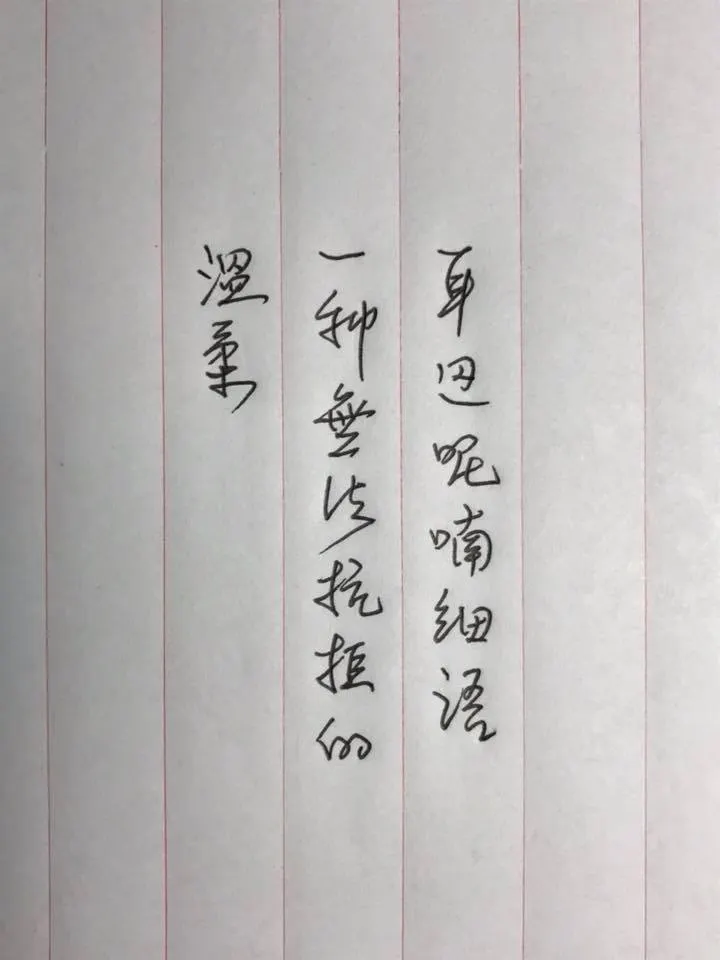 耳边呢喃细语
一种無法抗拒的
溫柔